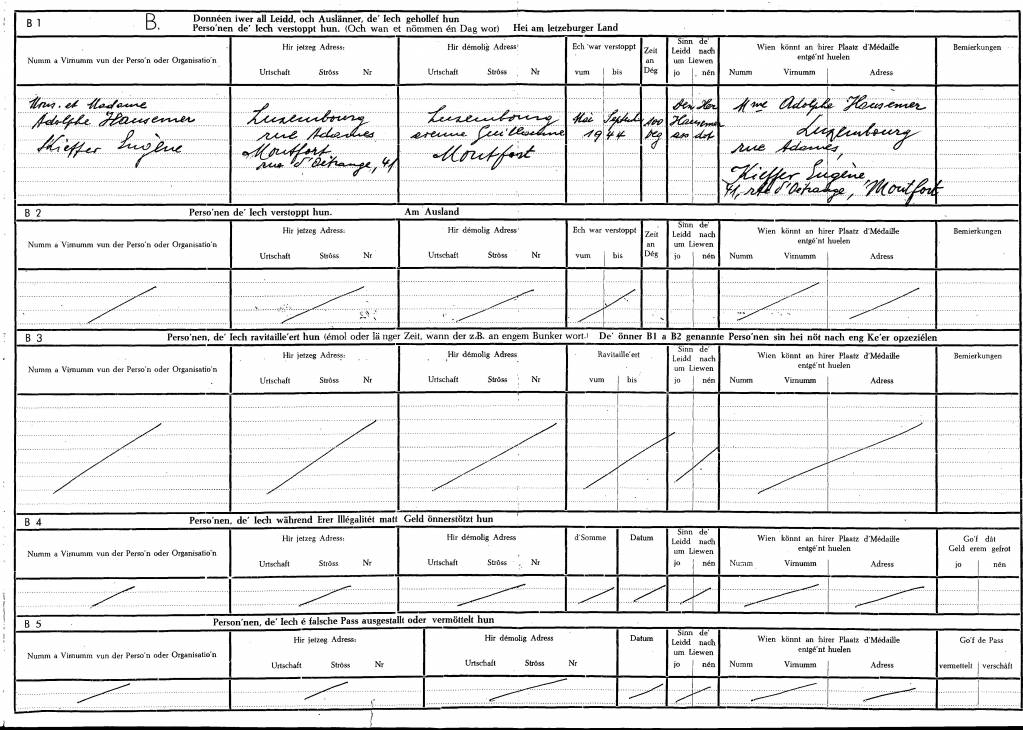 B 1
B.
Donnéen iwer all Leidd, och Auslänner, de' Iech gehollef hun
Perso'nen de' Iech verstoppt hun. (Och wan et nömmen én Dag wor) Hei am letzeburger Land
Numm a Virnumm vun der Perso'n oder Organisatio'n
Hir jetzeg Adress:
Urtschaft Ströss Nr
Hir démolig Adress:
Urtschaft Ströss Nr
Ech war verstoppt
vum bis
Zeit
an
Dég
Sinn de'
Leidd nach
um Liewen
jo nén
Wien könnt an hirer Plaatz d'Médaille
entgé'nt huelen
Numm Virnumm Adress
Bemierkungen
Mons. et Madame
Adolphe Hausemer
Kieffer Eugène
Luxembourg
rue Adames
Montfort
rue d'Oetrange, 41
Luxembourg
avenue Guillaume
Montfort
Mai Septemb
1944
100
Deg
Den Her
Hausemer
ass dot
Mme Adolphe Hausemer
Luxembourg
rue Adames,
Kieffer Eugène
41, rte d'Oetrange, Montfort
B 2
Perso'nen de' Iech verstoppt hun. Am Ausland
Numm a Virnumm vun der Perso'n oder Organisatio'n
Hir jetzeg Adress:
Urtschaft Ströss Nr
Hir démolig Adress:
Urtschaft Ströss Nr
Ech war verstoppt
vum bis
Zeit
an
Dég
Sinn de'
Leidd nach
um Liewen
jo nén
Wien könnt an hirer Plaatz d'Médaille
entgé'nt huelen
Numm Virnumm Adress
Bemierkungen
B 3
Perso'nen, de' Iech ravitaille'ert hun (émol oder lä nger Zeit, wann der z.B. an engem Bunker wort.) De' önner B1 a B2 genannte Perso'nen sin hei nöt nach eng Ke'er opzeziélen
Numm a Virnumm vun der Perso'n oder Organisatio'n
Hir jetzeg Adress:
Urtschaft Ströss Nr
Hir démolig Adress
Urtschaft Ströss Nr
Ravitaille'ert
vum bis
Sinn de'
Leidd nach
um Liewen
jo nén
Wien könnt an hirer Plaatz d'Médaille
entgé'nt huelen
Numm Virnumm Adress
Bemierkungen
B 4
Perso'nen, de' Iech während Erer Illégalitét matt Geld önnerstötzt hun
Numm a Virnumm vun der Perso'n oder Organisatio'n
Hir jetzeg Adress:
Urtschaft Ströss Nr
Hir démolig Adress
Urtschaft Ströss Nr
d'Somme
Datum
Sinn de'
Leidd nach
um Liewen
jo nén
Wien könnt an hirer Plaatz d'Médaille
entgé'nt huelen
Numm Virnumm Adress
Go'f dát
Geld erem gefrot
jo nén
B 5
Person'nen, de' Iech é falsche Pass ausgestallt oder vermöttelt hun
Numm a Virnumm vun der Perso'n oder Organisatio'n
Hir jetzeg Adress:
Urtschaft Ströss Nr
Hir démolig Adress
Urtschaft Ströss Nr
Datum
Sinn de'
Leidd nach
um Liewen
jo nén
Wien könnt an hirer Plaatz d'Médaille
entgé'nt huelen
Numm Virnumm Adress
Go'f de Pass
vermettelt verschäft